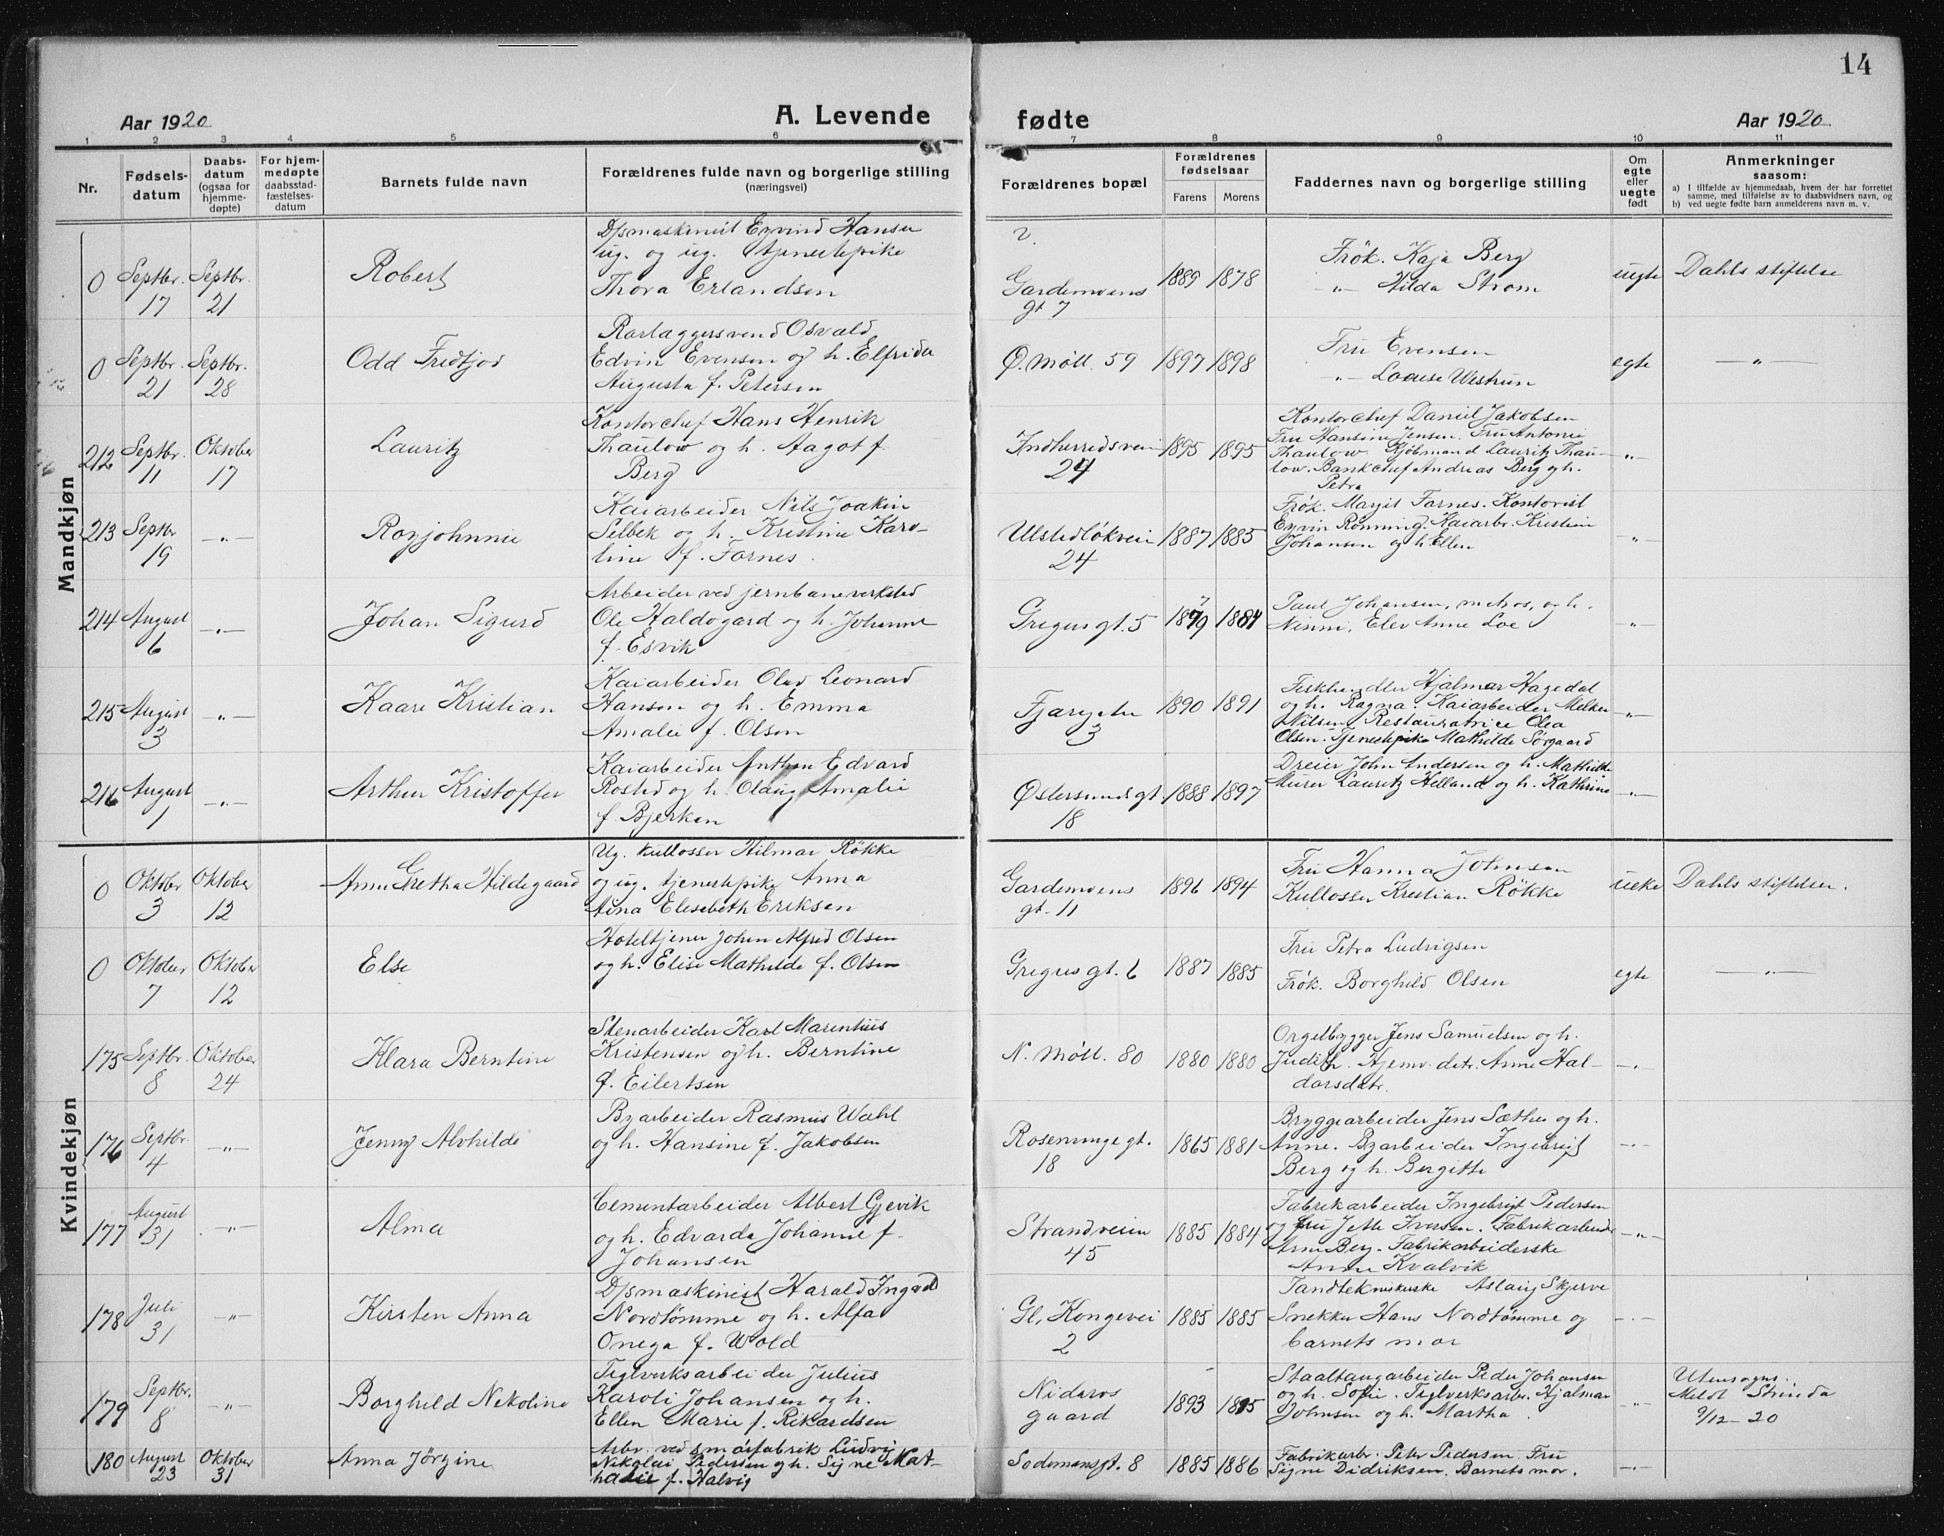 14
Aar 1920 A. Levende fødte Aar 1920
1 2 3 4 5 6 7 8 9 10 11
Nr. Fødselsdatum Daabsdatum (ogsaa for hjemmedøpte) For hjemmedøpte daabsstadfæstelsesdatum Barnets fulde navn Forældrenes fulde navn og borgerlige stilling (næringsvei) Forældrenes bopæl Forældrenes fødselsaar Farens Morens Faddernes navn og borgerlige stilling Om egte eller uegte født Anmerkninger saasom:
a) I tilfælde av hjemmedaab, hvem der har forrettet samme, med tilføielse av to daabsvidners navn, og
b) ved uegte fødte barn anmelderens navn m. v.
Mandkjøn
0 Septbr. 17 Septbr. 21 Robert
D/smaskinist Eyvind Hansen
ug. og ug. tjenestepike
Thora Erlandsen
Gardemoens
gt 7
1889 1878
Frök. Kaja Berg
-"- Hilda Strøm
uegte Dahls stiftelse
0 Septbr. 21 Septbr. 28 Odd Fredtjod
Rørlæggersvend Osvald
Edvin Evensen og h. Elfrida
Augusta f. Petersen
Ø. Møll. 59 1897 1898
Fru Evensen
-"- Louise Westrum
egte -"-
212 Septbr. 11 Oktober 17 Lauritz
Kontorchef Hans Henrik
Thaulow og h. Aagot f.
Berg
Indherredsvei
24
1895 1895
Kontorchef Daniel Jakobsen
Fru Hansine Jensen. Fru Antonie
Thaulow Kjøbmand Lauritz Thau-
low. Bankchef Andreas Berg og h.
Petra
-"-
213 Septbr 19 -"- Royjohnnie
Kaiarbeider Nils Joakin
Selbek og h. Kristine Karo-
line f. Fornes.
Ulstedløkvei
24
1887 1885
Frøk. Marjit Farnes. Kontorist
Eyvin Rønning. Kaiarb. Kristian
Johansen og h. Ellen
-"-
214 August 6 -"- Johan Sigurd
Arbeider ved jernbaneverksted
Ole Haldogard og h. Johanne
f. Esvik
Gregusgt. 5 1879 1884
Paul Johansen, matros, og h.
Ninni, Elev Anne Loe
-"-
215 August 3 -"- Kaare Kristian
Kaiarbeider Olav Leonard
Hansen og h. Emma
Amalie f. Olsen
Fjæregaten
3
1890 1891
Fiskhandler Hjalmar Hagedal
og h. Ragna. Kaiarbeider Melker
Nilsen, Restauratrice Olea
Olsen. Tjenestepike Mathilde Sørgaard
-"-
216 August 1 -"- Arthur Kristoffer
Kaiarbeider Anthon Edvard
Rosted og h. Olaug Amalie
f. Bjerkan
Østersundsgt
18
1888 1897
Dreier John Andersen og h. Mathilde
Murer Lauritz Helland og h. Kathrine
-"-
Kvindekjøn
0 Oktobr 3 Oktober 12 Anne Gretha Hildegaard
Ug. kullosser Hilmar Røkke
og ug. tjenestepike Anna
Aina Elisebeth Eriksen
Gardemoens
gt. 11
1896 1894
Fru Hanna Johnsen
Kullosser Kristian Røkke
uekte Dahls stiftelse.
0 Oktober 7 Oktober 12 Else
Hoteltjener Johan Alfred Olsen
og h. Elise Mathilde f. Olsen
Gregusgt. 6 1887 1885
Fru Petra Ludvigsen
Frøk. Borghild Olsen
egte -"-
175 Septbr. 8 Oktober 24 Klara Berntine
Stenarbeider Karl Marentius
Kristensen og h. Berntine
f. Eilertsen
N. Møll. 80 1880 1880
Orgelbygger Jens Samuelsen og h.
Judith. Hjemv. datr. Anne Hal-
dorsdatr.
-"-
176 Septbr. 4 -"- Jenny Alvhilde
Byarbeider Rasmus Wahl
og h. Hansine f. Jakobsen
Rosenborggt.
18
1865 1881
Bryggearbeider Jens Sæther og h.
Anne. Byarbeider Ingebrigt
Berg og h. Bergitte
-"-
177 August 31 -"- Alma
Cementarbeider Albert Gjevik
og h. Edvarda Johanne f.
Johansen
Strandveien
45
1885 1884
Fabrikarbeider Ingebrigt Pedersen
Fru Jette Iversen. Fabrikarbeider
Arne Berg. Fabrikarbeiderske
Anna Kvalvik
-"-
178 Juli 31 -"- Kirsten Anna
D/smaskinist Harald Ingvald
Nordtømme og h. Alfa
Onega f. Wold
Gl. Kongevei
2
1885 1885
Tandteknikerske Aslaug Skjerve
Snekker Hans Nordtømme og
barnets mor
-"-
179 Septbr. 8 -"- Borghild Nekoline
Teglverksarbeider Julius
Karoli Johansen og h.
Ellen Marie f. Rikardsen
Nidaros
gaard
1893 1895
Staaltangarbeider Peder Johansen
og h. Sofie. Teglverksarb. Hjalmar
Johnsen og h. Martha
-"-
Utensogns.
Meldt Strinda
9/12-20
180 August 23 Oktober 31 Anna Jørgine
Arb. ved smørfabrik Ludvig
Nikolai Pedersen og h. Signe Mat-
halie f. Halvig
Sodemansgt. 8 1885 1886
Fabrikarb. Peter Pedersen. Fru
Signe Didriksen. Barnets mor.
-"-